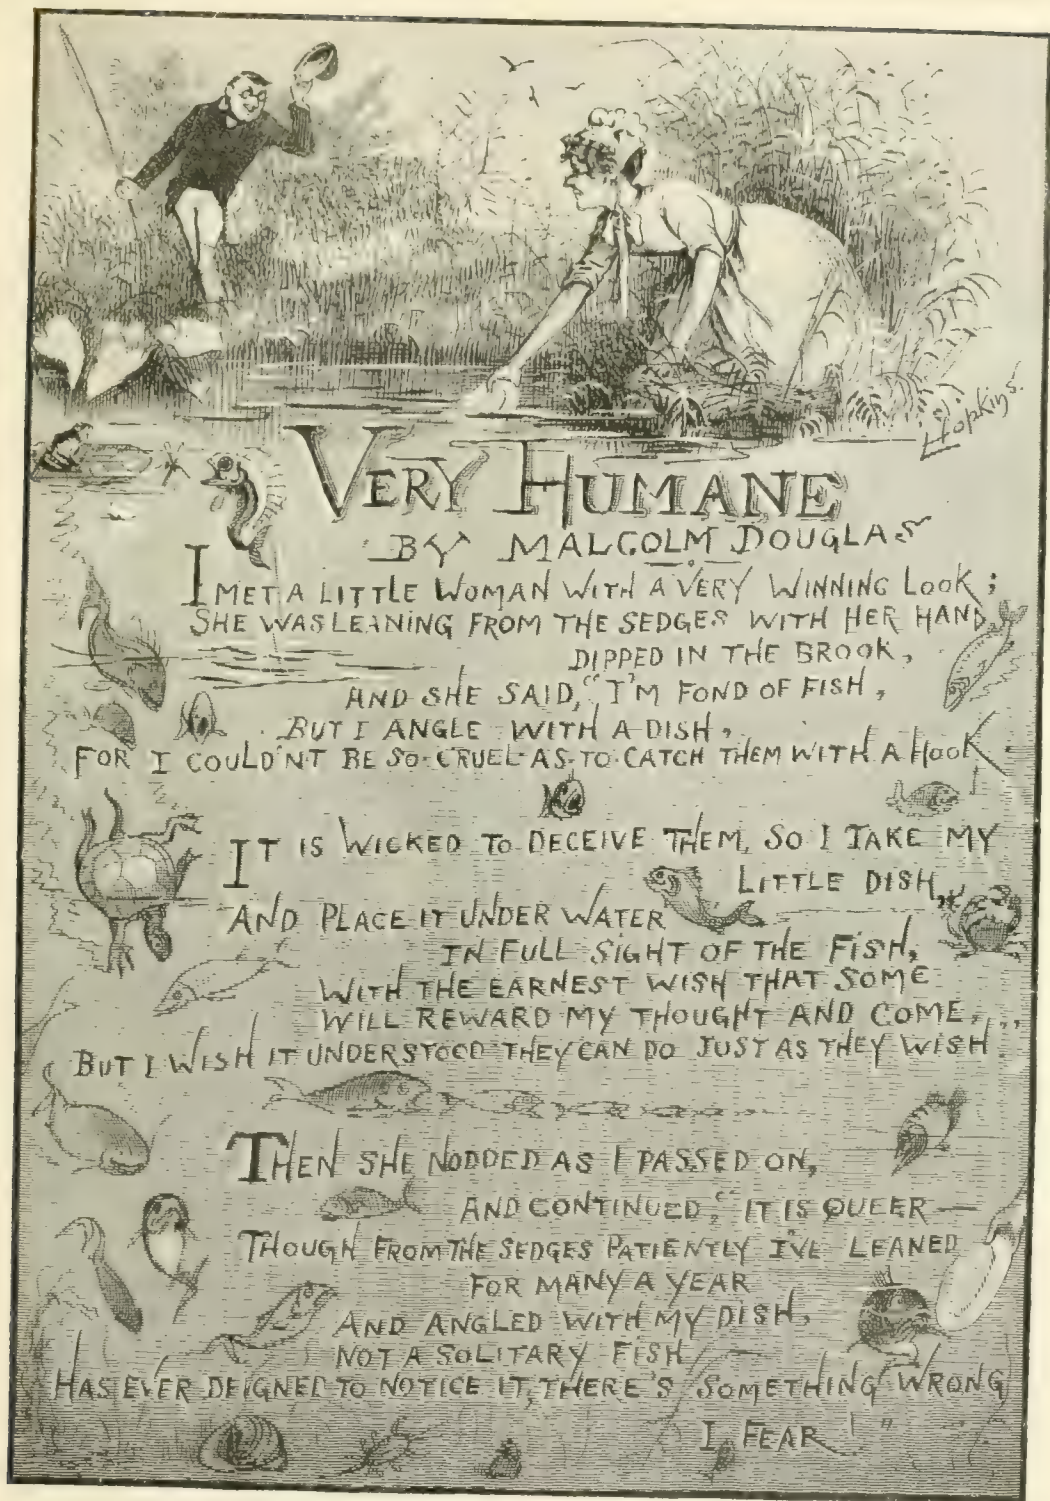 Hopkins.
VERY HUMANE
BY MALCOLM DOUGLAS
I MET A LITTLE WOMAN WITH A VERY WINNING LOOK;
SHE WAS LEANING FROM THE SEDGES WITH HER HAND
DIPPED IN THE BROOK,
AND SHE SAID, "I'M FOND OF FISH,
BUT I ANGLE WITH A DISH,
FOR I COULDN'T BE SO CRUEL AS TO CATCH THEM WITH A HOOK.
IT IS WICKED TO DECEIVE THEM, SO I TAKE MY
LITTLE DISH,
AND PLACE IT UNDER WATER
IN FULL SIGHT OF THE FISH,
WITH THE EARNEST WISH THAT SOME
WILL REWARD MY THOUGHT AND COME,
BUT I WISH IT UNDERSTOOD THEY CAN DO JUST AS THEY WISH."
THEN SHE NODDED AS I PASSED ON,
AND CONTINUED, "IT IS QUEER—
THOUGH FROM THE SEDGES PATIENTLY I'VE LEANED
FOR MANY A YEAR
AND ANGLED WITH MY DISH,
NOT A SOLITARY FISH
HAS EVER DEIGNED TO NOTICE IT, THERE'S SOMETHING WRONG,
I FEAR!"